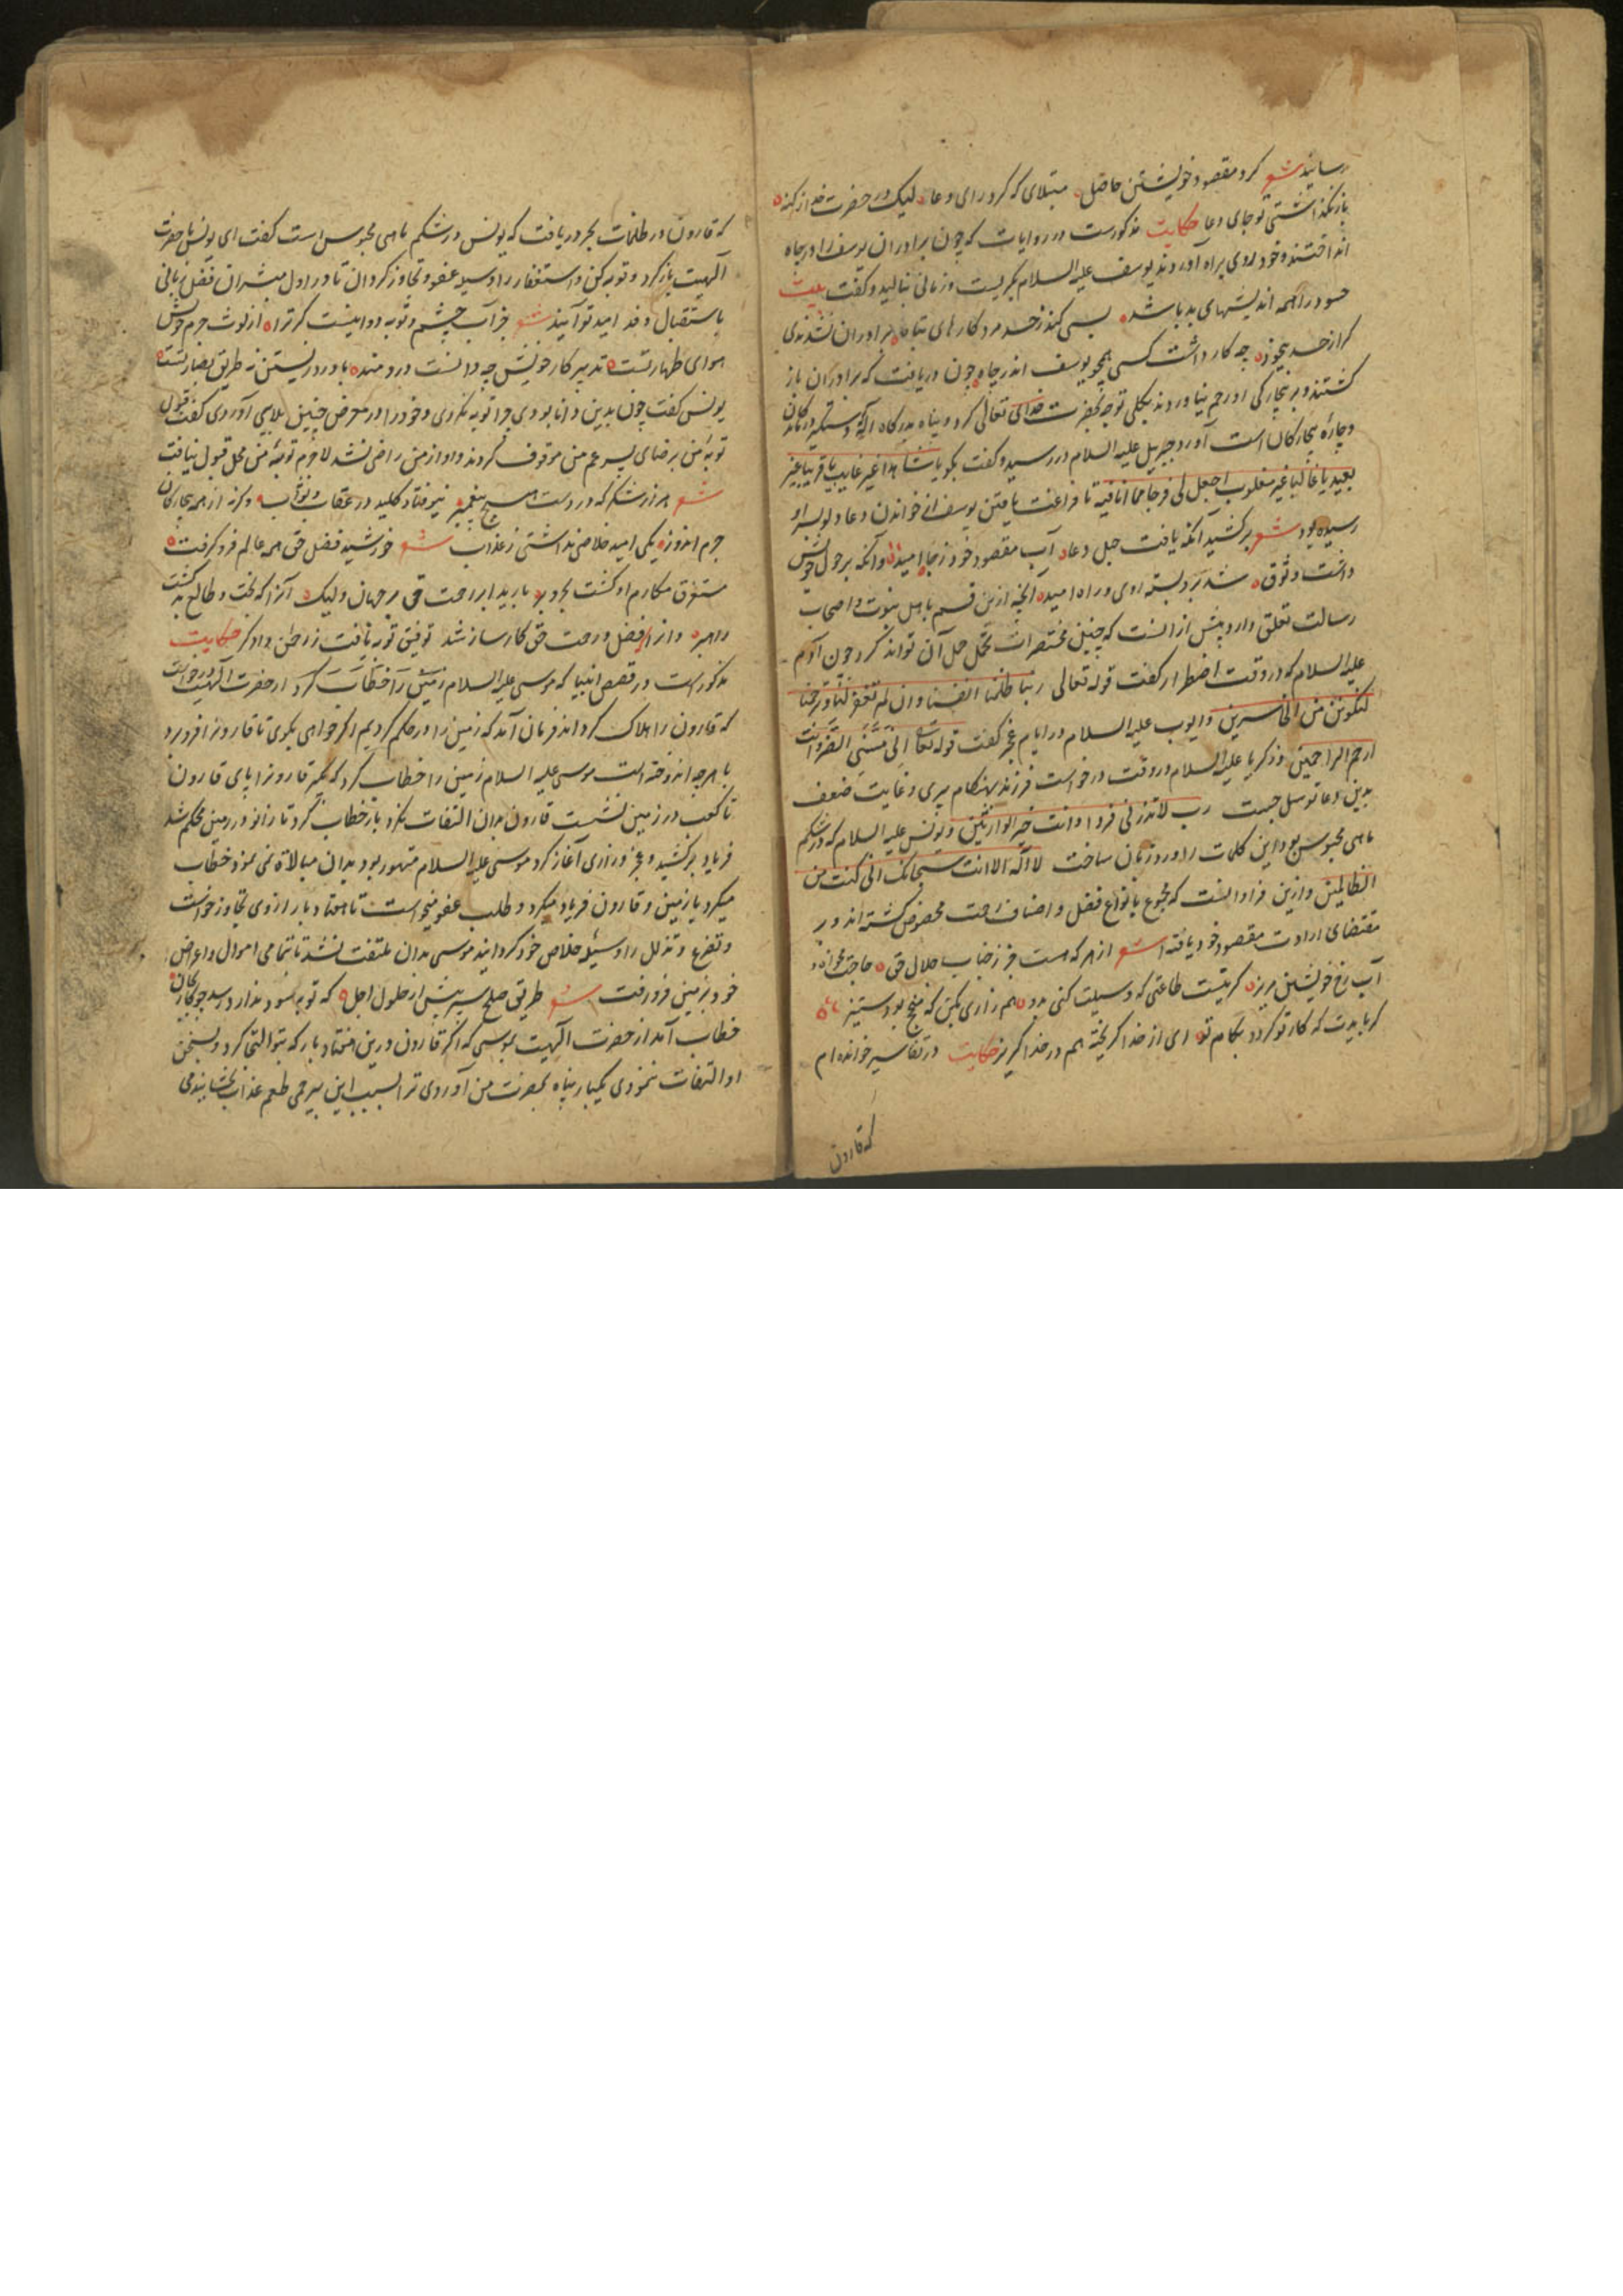 رسانید شعر کرد مقصود خویشتن حاصل مبتلای که کرد رای دعا لیک در حضرت خدا از کنه
باز نکذاشتی تو جای دعا حکایت مذکورست در روایات که چون برادران یوسف را در چاه
انداختند و خود روی براه آوردند یوسف علیه السلام بکریست و زمانی بنالید و کفت بیت
حسود را همه اندیشهای بد باشد بسی کند ز حسد مرد کارهای تباه برادران نشدندی
کر از حسد بیخود چه کار داشت کسی همچو یوسف اندر چاه چون دریافت که برادران باز
کشتند و بر بیچارکی او رحم نیاوردند بکلی توجه بحضرت خدای تعالی کرد و پناه بدرکاه آنکه دستکیر درماندکان
و چاره بیچارکان است آورد جبریل علیه السلام در رسید و کفت بکو یا شاهدا غیر غایب یا قریبا غیر
بعید یا غالبا غیر مغلوب اجعل لی فرجا مما انا فیه تا فراغت یافتن یوسف از خواندن دعا دلو بسر او
رسیده بود شعر برکشید آنکه یافت حبل دعا آب مقصود خود ز چاه امید وآنکه بر حول خویش
داشت وثوق شد برو بسته روی و راه امید آنچه ازین قسم باهل نبوت و اصحاب
رسالت تعلق دارد بیش از آنست که چنین مختصرات تحمل حمل آن تواند کرد چون آدم
علیه السلام که در وقت اضطرار کفت قوله تعالی ربنا ظلمنا انفسنا وان لم تغفر لنا وترحمنا
لنکونن من الخاسرین و ایوب علیه السلام در ایام عجز کفت قوله تعالی انی مسنی الضر وانت
ارحم الراحمین و زکریا علیه السلام در وقت درخواست فرزند بهنکام پیری و غایت ضعف
بدین دعا توسل جست رب لا تذرنی فردا وانت خیر الوارثین و یونس علیه السلام که در شکم
ماهی محبوس بود این کلمات را ورد زبان ساخت لا اله الا انت سبحانک انی کنت من
الظالمین و ازین فراوانست که مجموع بانواع فضل و اصناف رحمت مخصوص کشته اند و بر
مقتضای ارادت مقصود خود یافته شعر از هر که هست جز ز جناب جلال حق حاجت مخواه و
آب رخ خویشتن مریز کر نیست طاعتی که وسیلت کنی بدو هم زاری بکن که منج بود ستیز
کر بایدت که کار تو کردد بکام تو ای از خدا کریخته هم در خدا کریز حکایت در تفاسیر خوانده ام
که قارون
که قارون در ظلمات بحر دریافت که یونس در شکم ماهی محبوس است کفت ای یونس با حضرت
آلهیت باز کرد و توبه کن و استغفار را وسیله عفو و تجاوز کردان تا در اول مبشران فضل ربانی
باستقبال وفد امید تو آیند شعر جز آب چشم و توبه دوا نیست کر ترا از لوث جرم خویش
هوای طهارتست تدبیر کار خویش چه دانست دردمند با درد زیستن نه طریق بصارتست
یونس کفت چون بدین دانا بودی چرا توبه نکردی و خود را در معرض چنین بلایی آوردی کفت قبول
توبه من برضای پسر عم من موقوف کردند و او از من راضی نشد لاجرم توبه من محل قبول نیافت
شعر هرزه شمر که در دست هیچ پیغمبر نیوفتاد کلید در عقاب و ثواب وکرنه از همه بیچارکان
جرم اندوز یکی امید خلاصی نداشتی ز عذاب شعر خورشید فضل حق همه عالم فرو کرفت
مستغرق مکارم او کشت بحر و بر بارید ابر رحمت حق بر جهان ولیک آنرا که بخت و طالع بد کشت
راهبر واز فضل و رحمت حق کارساز شد توفیق توبه یافت ز رحمن دادکر حکایت
مذکور است در قصص انبیا که موسی علیه السلام زمین را خطاب کرد از حضرت آلهیت درخواست
که قارون را هلاک کرداند فرمان آمد که زمین را در حکم کردیم اکر خواهی بکوی تا قارونرا فرو برد
با هرچه اندوخته است موسی علیه السلام زمین را خطاب کرد که بکیر قارونرا پای قارون
تا کعب در زمین نشست قارون بدان التفات نکرد باز خطاب کرد تا زانو در زمین محکم شد
فریاد برکشید و عجز و زاری آغاز کرد موسی علیه السلام متهور بود بدان مبالاة نمی نمود خطاب
میکرد با زمین و قارون فریاد میکرد و طلب عفو میخواست تا هفتاد بار از وی تجاوز خواست
و تضرع و تذلل را وسیله خلاص خود کردانید موسی بدان ملتفت نشد تا بتمامی اموال و اعراض
خود بزمین فرو رفت شعر طریق صلح سپر پیش از حلول اجل که توبه سود ندارد رسد چو کار بجان
خطاب آمد از حضرت آلهیت بموسی که اکر قارون درین هفتاد بار که بتو التجا کرد و بسخن
او التفات ننمودی یکبار پناه بحضرت من آوردی ترا بسبب این بیرحمی طعم عذاب بچشانیدمی